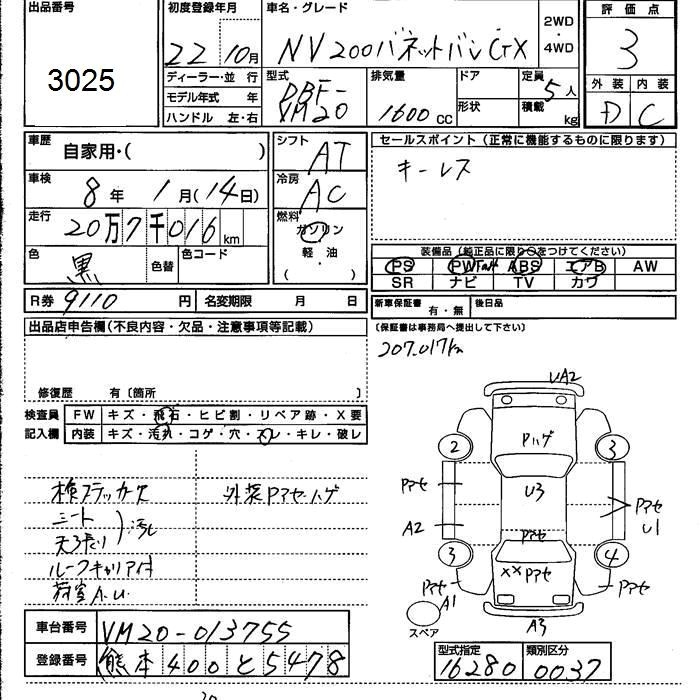 出品番号
3025
初度登録年月
22 10月
車名・グレード
NV200バネットバンGX
2WD
・
4WD
評価点
3
外装 内装
D C
ディーラー・並 行
モデル年式 年
ハンドル 左・右
型式
DBF-
VM20
排気量
1600 cc
ドア
形状
定員
5人
積載
kg
車歴
自家用・( )
シフト
AT
セールスポイント (正常に機能するものに限ります)
キーレス
車検
8年 1月(14日)
冷房
AC
走行
20万7千016km
燃料
ガソリン
・
軽・油
( )
色
黒
色替
色コード
装備品 (純正品に限り○をつけてください)
PS PW ABS エアB AW
SR ナビ TV カワ
R券 9110 円
名変期限 月 日
新車保証書 有・無
後日品
(保証書は事務局へ提出して下さい)
207,017km
出品店申告欄(不良内容・欠品・注意事項等記載)
修復歴 有〔箇所 〕
検査員
記入欄
FW キズ・飛石・ヒビ割・リペア跡・X要
内装 キズ・汚れ・コゲ・穴・スレ・キレ・破レ
シート
天張り
汚れ
ルーフキャリア付
荷室A.U.
外装Pアセ・ハゲ
UA2
Pハゲ
2
3
Pアセ
U3
Pアセ
U1
A2
Pアセ
3
4
XX Pアセ
Pアセ
A1
Pアセ
スペア
A3
車台番号 VM20-013755
登録番号 熊本400と5478
型式指定
16280
類別区分
0037